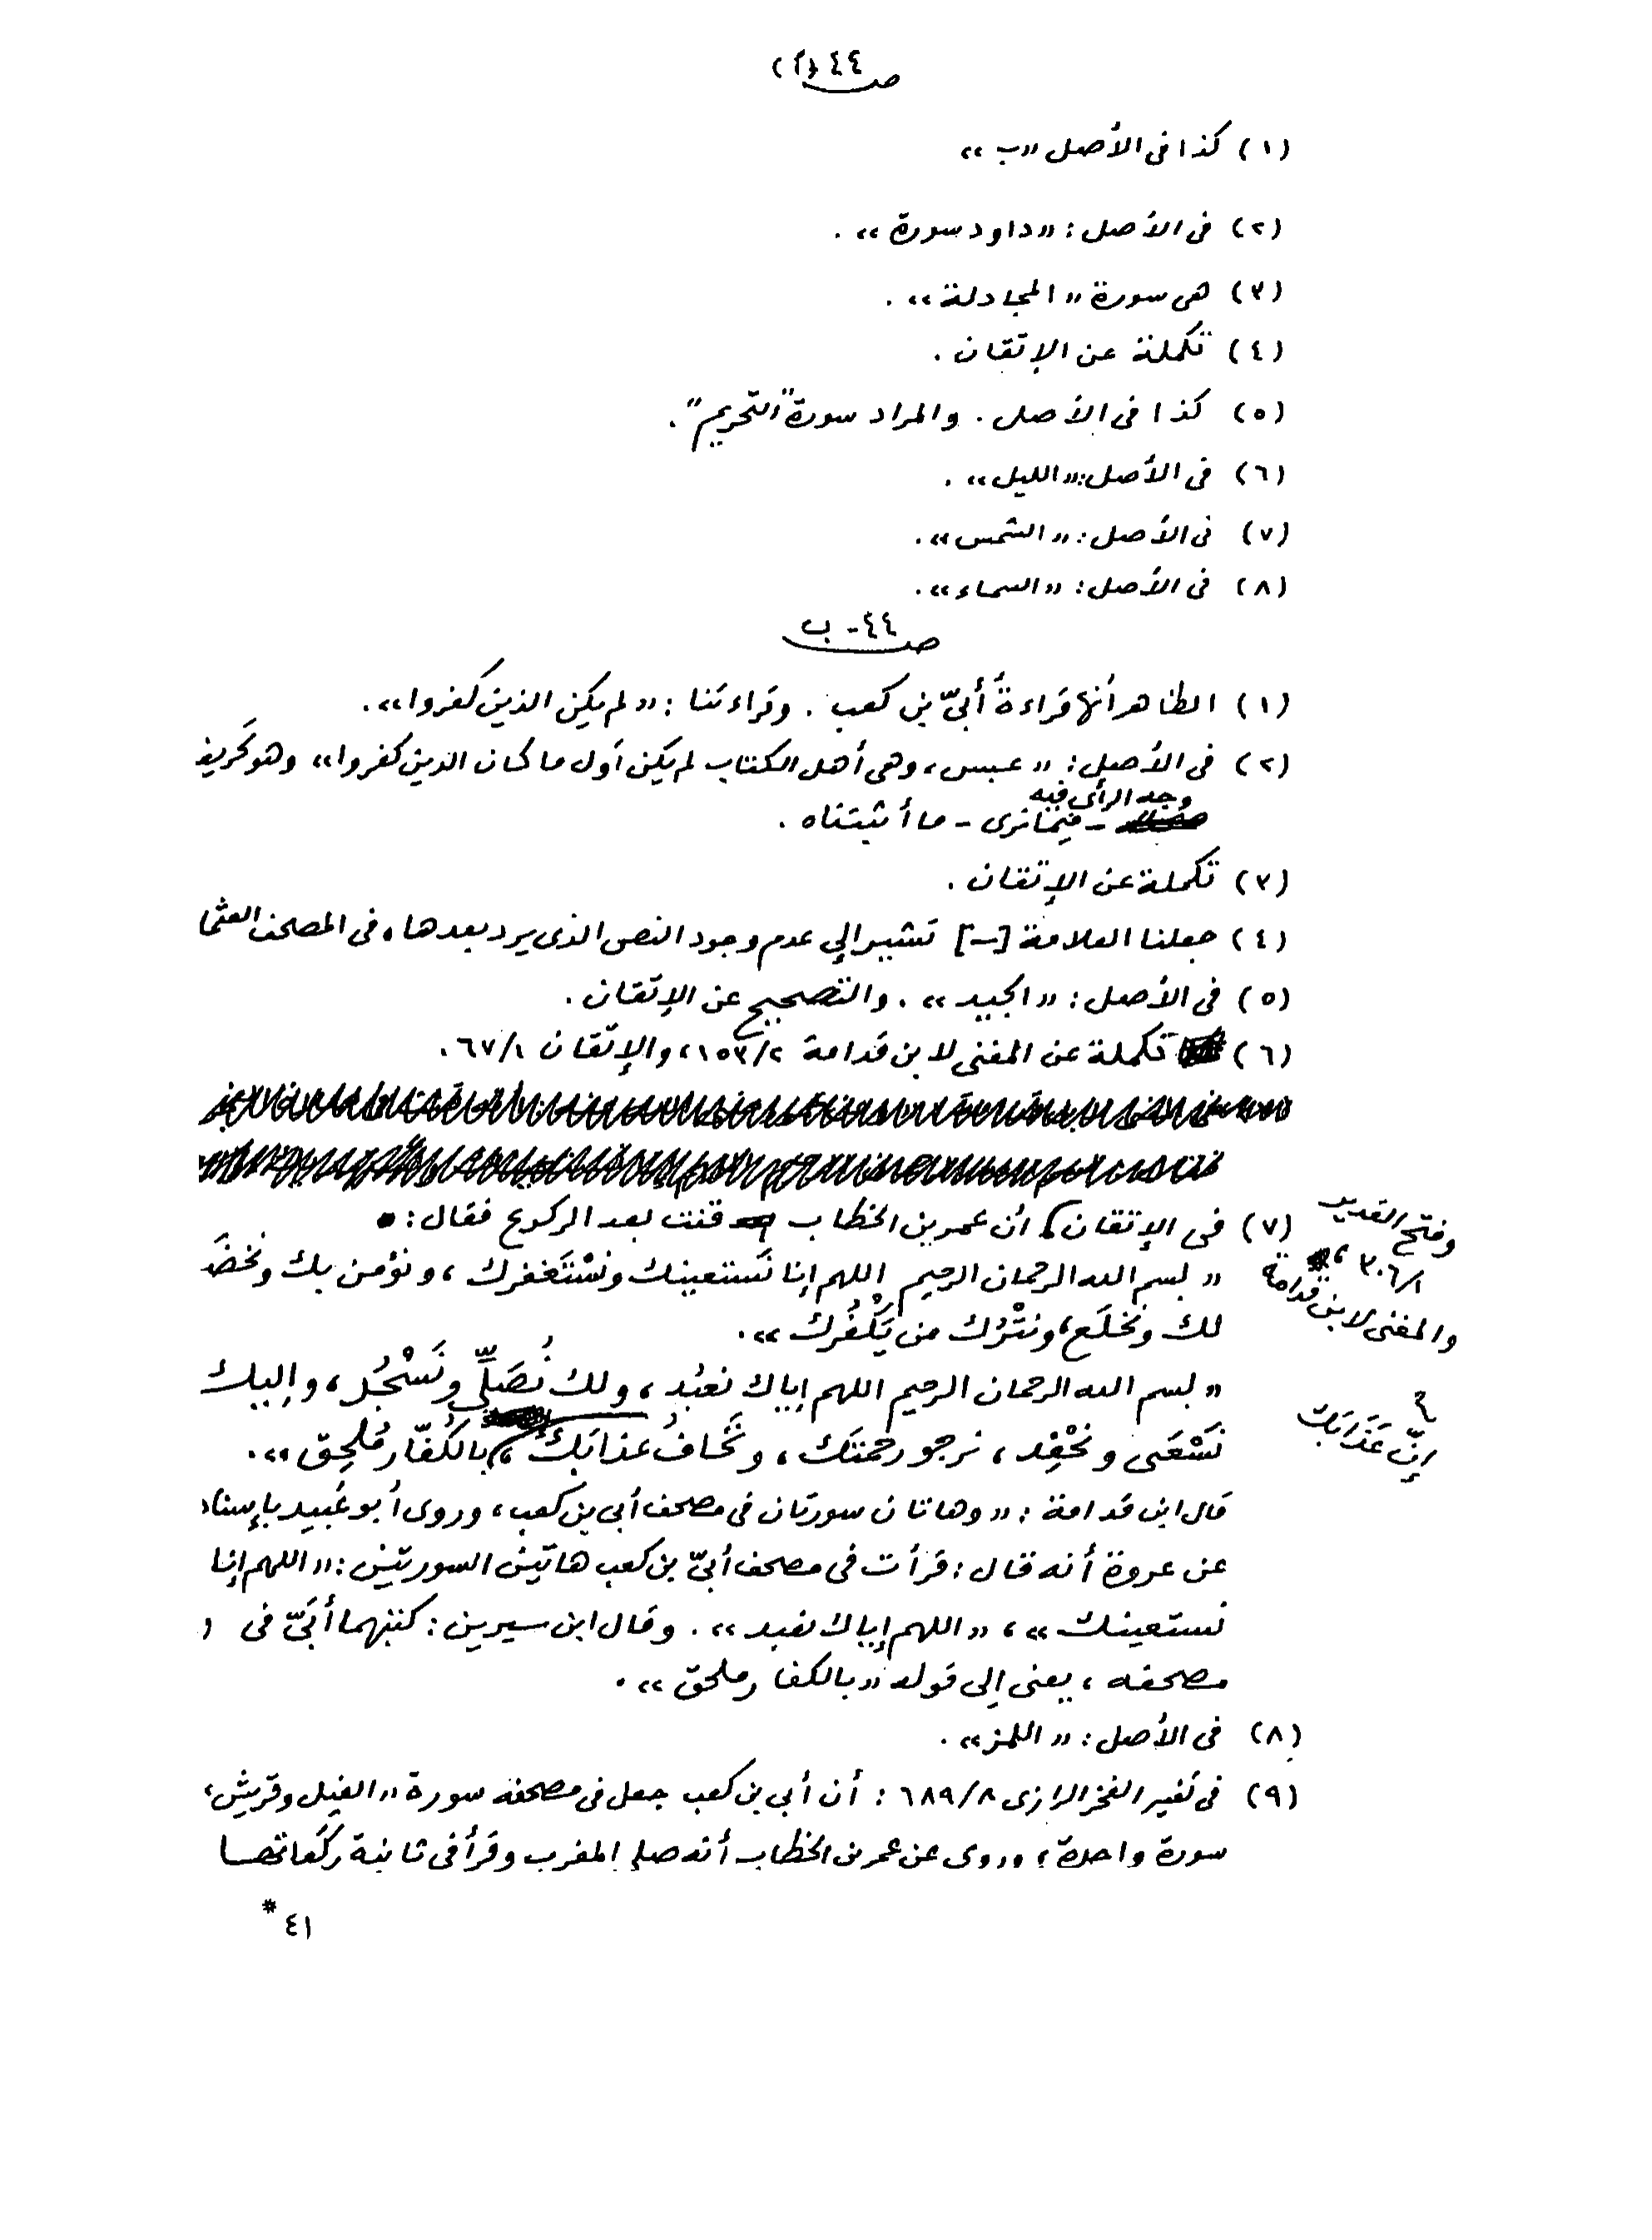 ص ٤٤ (أ)
(١) كذا فى الأصل «ب»
(٢) فى الأصل : «داود سورة» .
(٣) هى سورة «المجادلة» .
(٤) تكملة عن الإتقان .
(٥) كذا فى الأصل . والمراد سورة "التحريم" .
(٦) فى الأصل : «الليل» .
(٧) فى الأصل : «الشمس» .
(٨) فى الأصل : «السماء» .
ص ٤٤ - ب
(١) الظاهر أنها قراءةُ أُبىّ بن كعب . وقراءتنا : «لم يكن الذين كفروا» .
(٢) فى الأصل : «عبس ، وهى أهل الكتاب لم يكن أول ما كان الذين كفروا» وهو تحريف
وجه الرأى فيه
- فيما نرى - ما أثبتناه .
(٣) تكملة عن الإتقان .
(٤) جعلنا العلامة [-] تشير إلى عدم وجود النص الذى يرد بعدها ، فى المصحف العثما
(٥) فى الأصل : «الجيد» . والتصحيح عن الإتقان .
(٦) تكملة عن المغنى لابن قدامة ١٥٣/٢ ، والإتقان ٦٧/١ .
(٧) فى الإتقان ، أن عمر بن الخطاب قنت بعد الركوع فقال :
وفتح القدير
٣٠٦/١ ،
والمغنى لابن قدامة
«بسم الله الرحمان الرحيم اللهم إنا نَستعينك ونسْتَغفرك ، ونؤمن بك ونخضَ
لك ونخلَع ، ونتْرُك من يَكْفُرك» .
«بسم الله الرحمان الرحيم اللهم إياك نعبُد ، ولك نُصَلِّى ونَسْجُد ، وإليك
نَسْعَى ونحْفِد ، نرجو رحمتك ، ونَخافُ عذابَك ، بالكُفّار مُلحِق» .
إنّ عَذَابَك
قال ابن قدامة : «وهاتان سورتان فى مصحف أبى بن كعب ، وروى أبو عُبيد بإسناد
عن عروة أنه قال : قرأت فى مصحف أبىّ بن كعب هاتين السورتين : «اللهم إنا
نستعينك» ، «اللهم إياك نعبد» . وقال ابن سيرين : كتبهما أبَىّ فى
مصحفه ، يعنى إلى قوله «بالكفار ملحق» .
(٨) فى الأصل : «اللمز» .
(٩) فى تفسير الفخر الرازى ٦٨٩/٨ : أن أبى بن كعب جعل فى مصحفه سورة «الفيل وقريش ،
سورة واحدة ، وروى عن عمر بن الخطاب أنه صلى المغرب وقرأ فى ثانية ركعاتها
٤١ *